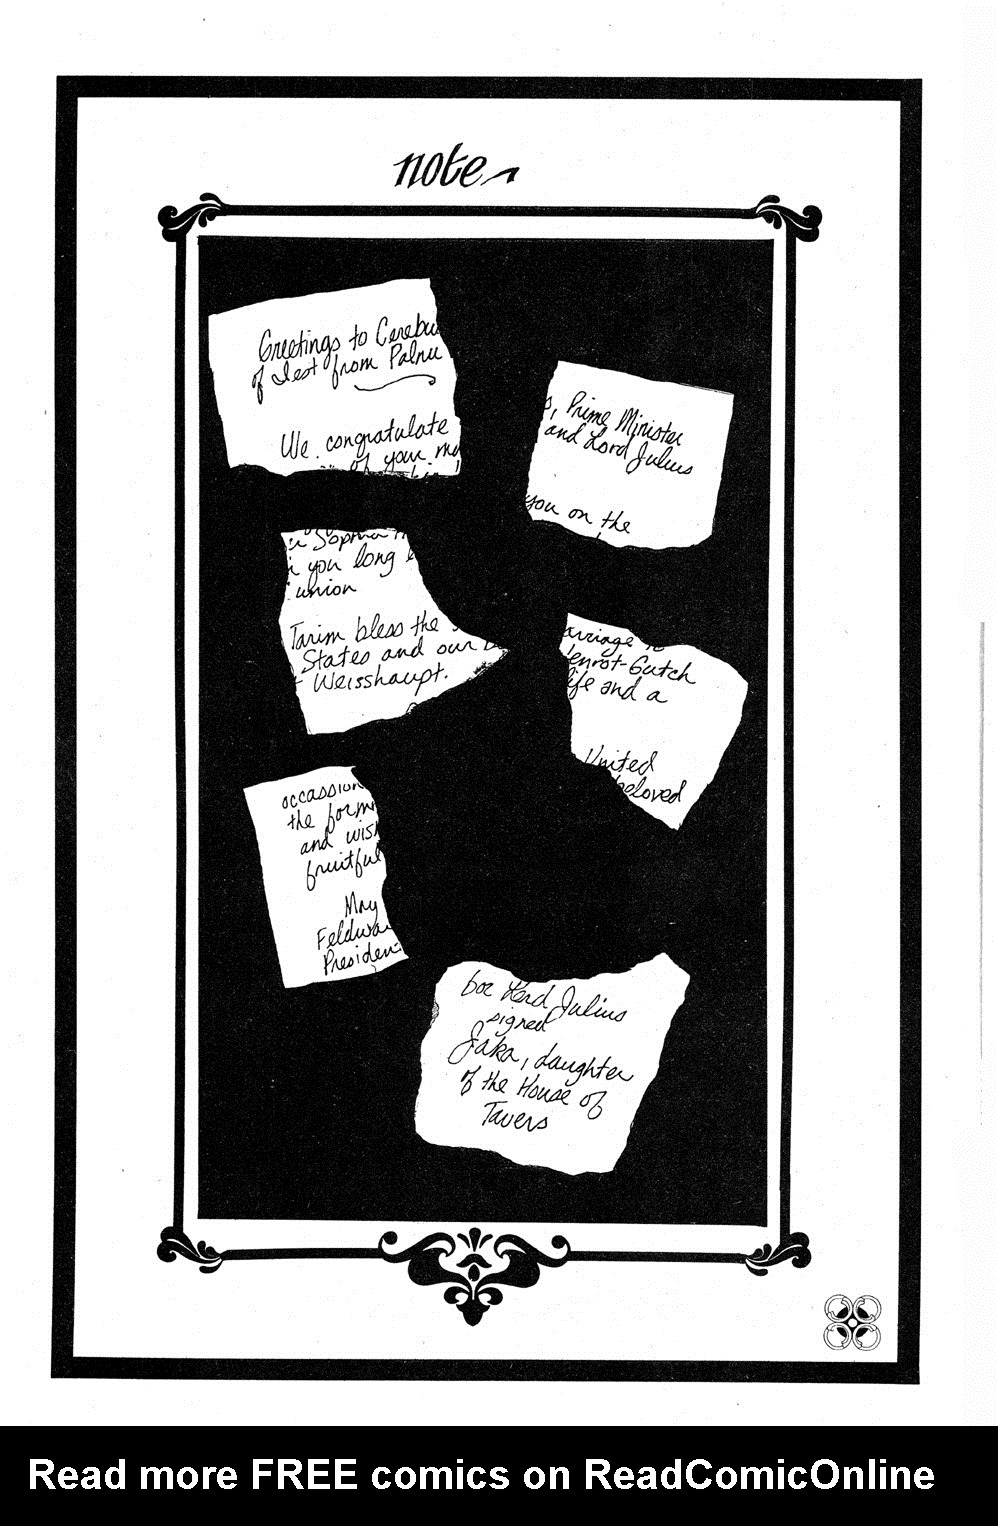 note
Greetings to Cerebu
of Iest from Palnu
We congratulate
of your ma
s, Prime Minister
and Lord Julius
you on the
u Sophia
you long
union
Tarim bless the
States and our
Weisshaupt.
arriage to
enrot-Gutch
ife and a
United
beloved
occassion
the form
and wish
fruitful
May
Feldwa
Presiden
for Lord Julius
signed
Jaka, daughter
of the House of
Tavers
Read more FREE comics on ReadComicOnline